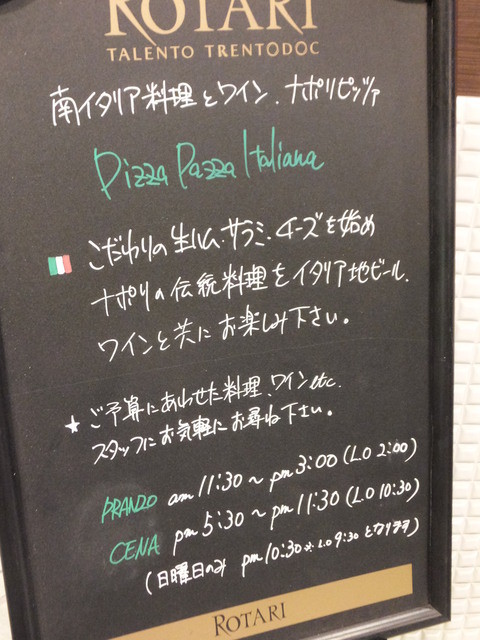 ROTARI
TALENTO TRENTODOC
南イタリア料理とワイン、ナポリピッツァ
Pizza Pazza Italiana
こだわりの生ハム・サラミ・チーズを始め
ナポリの伝統料理をイタリア地ビール、
ワインと共にお楽しみ下さい。
★ ご予算にあわせた料理、ワインetc.
スタッフにお気軽にお尋ね下さい。
PRANZO am 11:30 〜 pm 3:00 (L.O 2:00)
CENA pm 5:30 〜 pm 11:30 (L.O 10:30)
(日曜日のみ pm 10:30 ※ L.O 9:30 となります)
ROTARI